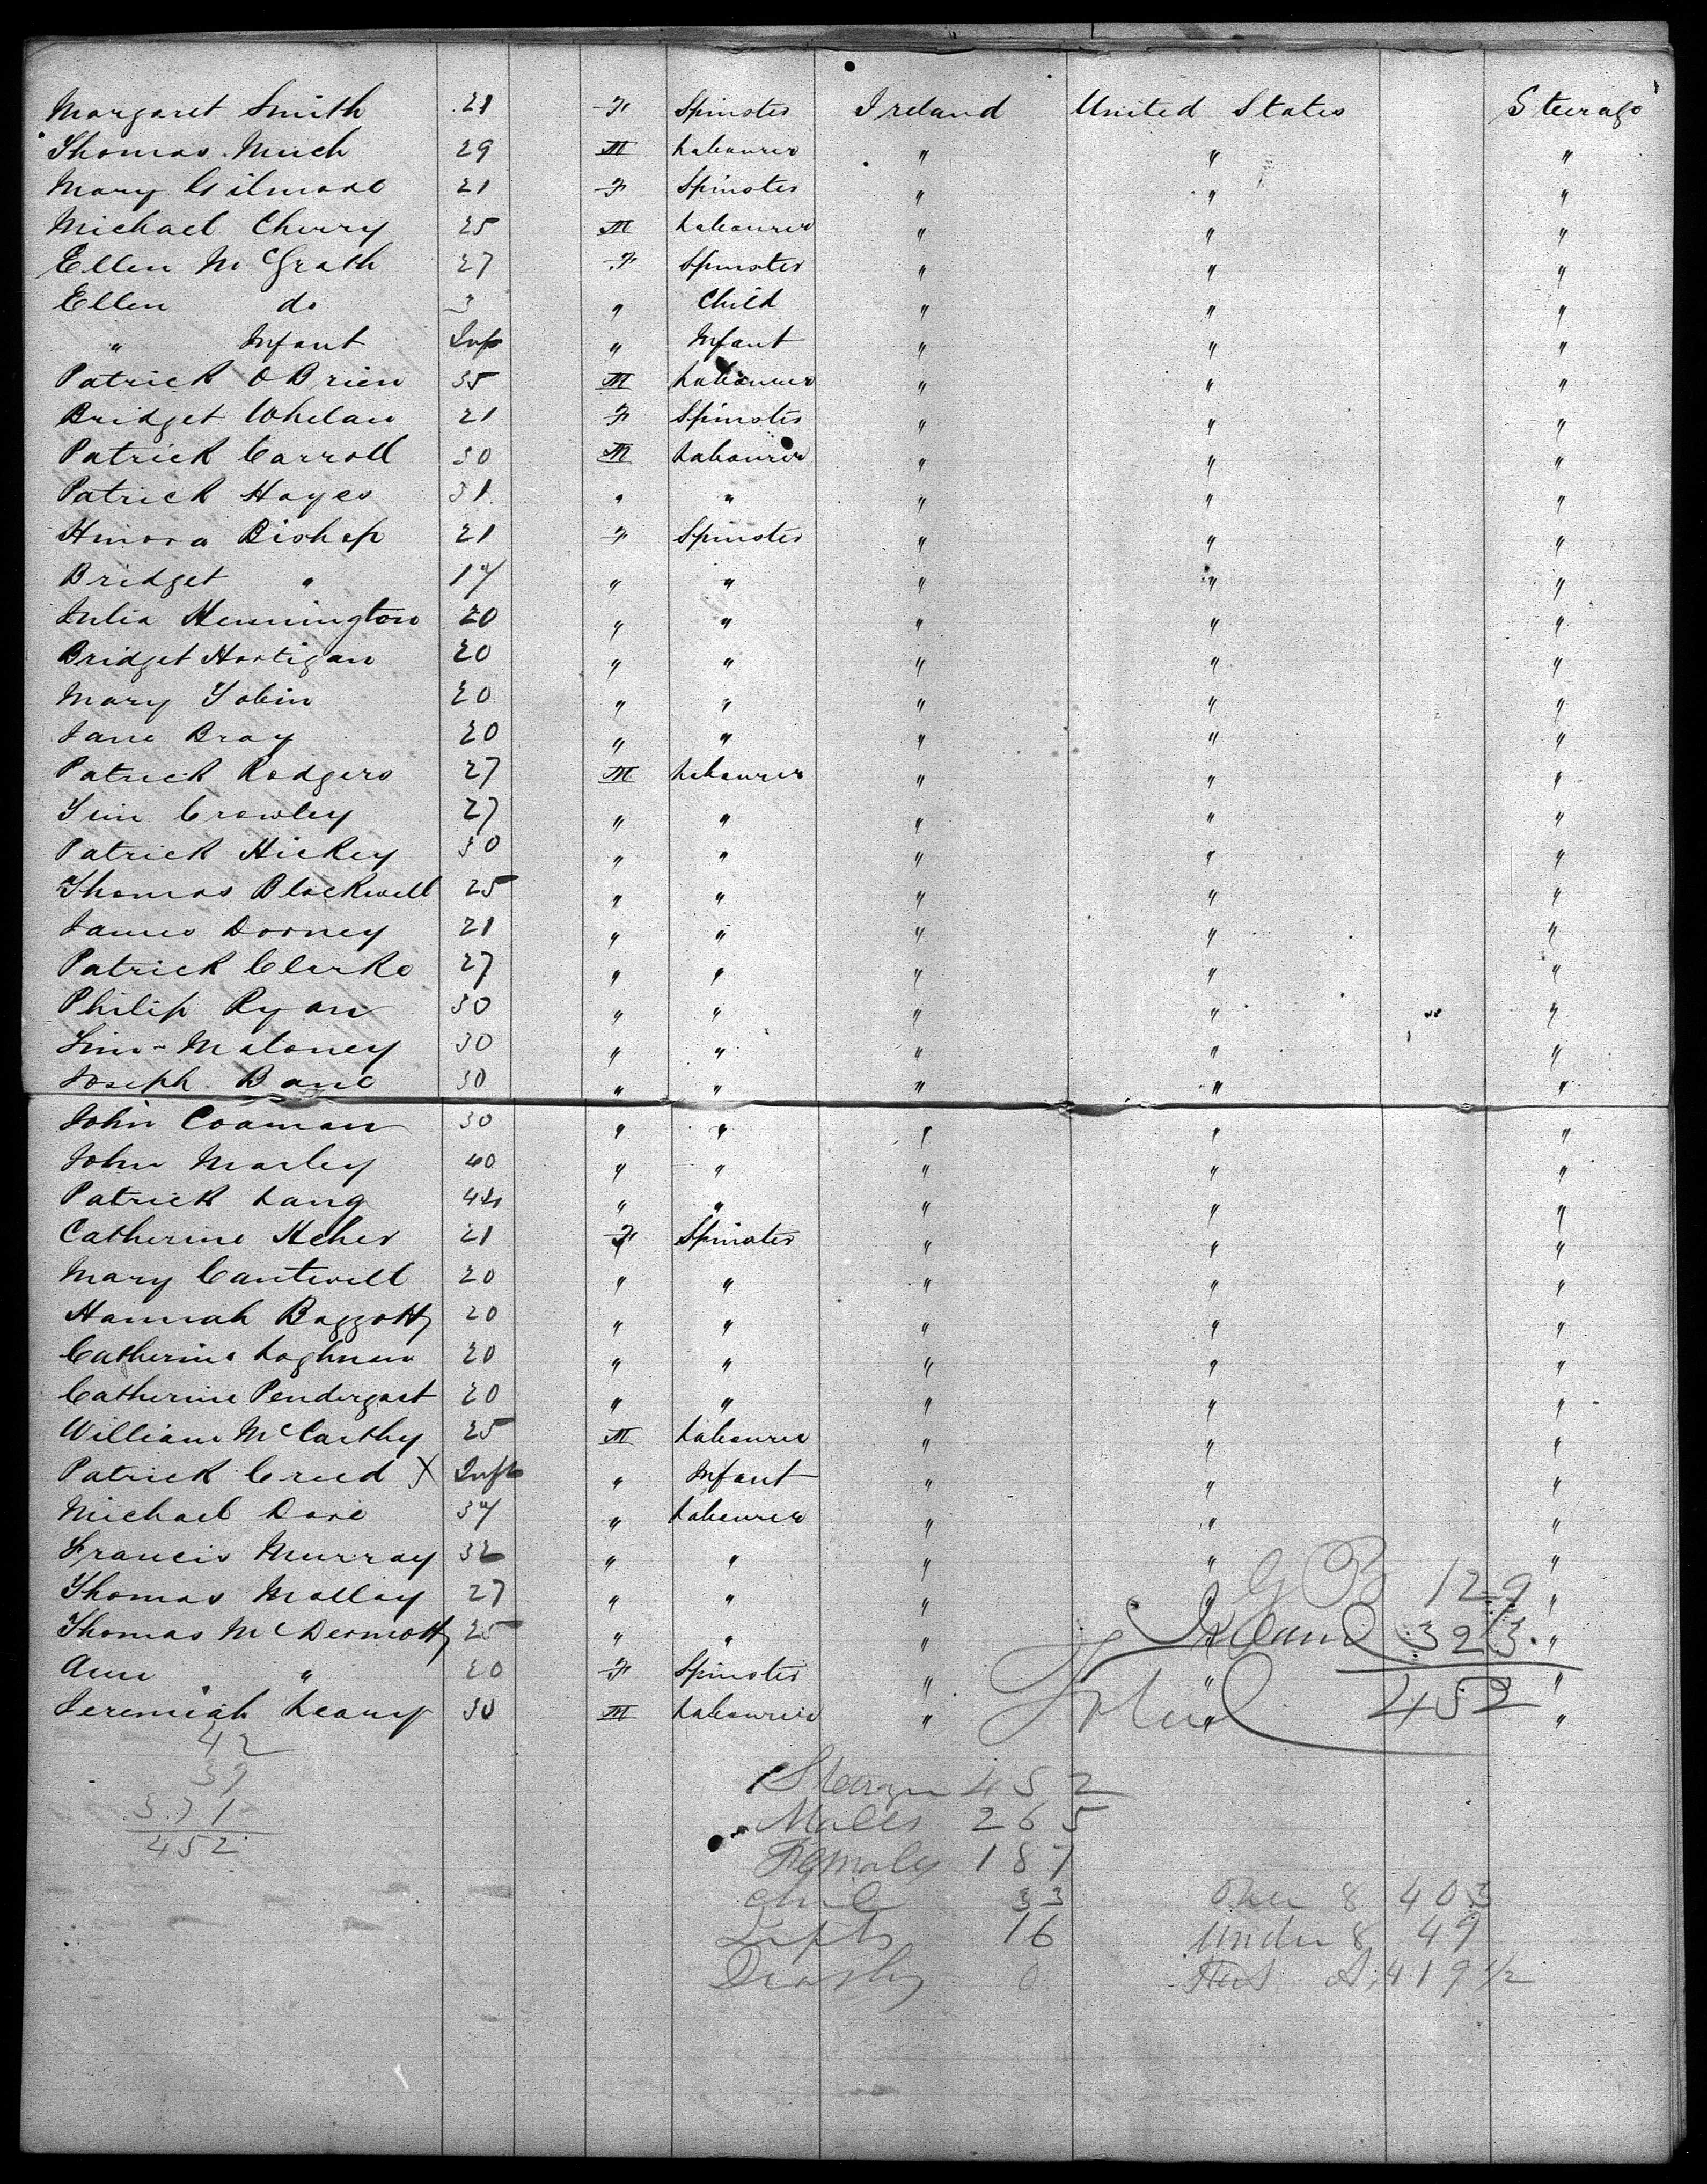 Margaret Smith 21 F Spinster Ireland United States Steerage
Thomas Much 29 M Labourer " " "
Mary Gilmore 21 F Spinster " " "
Michael Cherry 25 M Labourer " " "
Ellen McGrath 27 F Spinster " " "
Ellen do 3 " Child " " "
" Infant Inft " Infant " " "
Patrick OBrien 35 M Labourer " " "
Bridget Whelan 21 F Spinster " " "
Patrick Carroll 30 M Labourer " " "
Patrick Hayes 31 " " " " "
Hinora Bishop 21 F Spinster " " "
Bridget " 17 " " " " "
Julia Hennington 20 " " " " "
Bridget Hartigan 20 " " " " "
Mary Tobin 20 " " " " "
Jane Bray 20 " " " " "
Patrick Rodgers 27 M Labourer " " "
Tim Crowley 27 " " " " "
Patrick Hickey 30 " " " " "
Thomas Blackwell 25 " " " " "
James Dorney 21 " " " " "
Patrick Clarke 27 " " " " "
Philip Ryan 30 " " " " "
Tim Maloney 30 " " " " "
Joseph Bane 30 " " " " "
John Coaman 30 " " " " "
John Marley 40 " " " " "
Patrick Lang " " " " "
Catherine Heher 21 F Spinster " " "
Mary Cantwell 20 " " " " "
Hannah Baggott 20 " " " " "
Catherine Loghnan 20 " " " " "
Catherine Pendergast 20 " " " " "
William McCarthy 25 M Labourer " " "
Patrick Creed X Inft " Infant " " "
Michael Dore 37 " Labourer " " "
Francis Murray 32 " " " " "
Thomas Mallay 27 " " " " G B 129 "
Thomas McDermott 25 " " " Ireland 323 "
Ann " 20 F Spinster " " "
Jeremiah Leary 30 M Labourer " Total 452 "
42
39
371
452
Steerage 452
Males 265
Females 187
Chil 33 Over 8 403
Infts 16 Under 8 49
Deaths 0 Stat A, 419 1/2